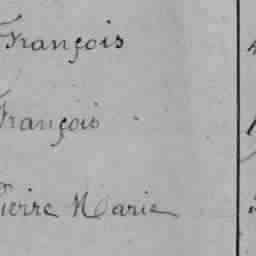 François
François
Pierre Marie